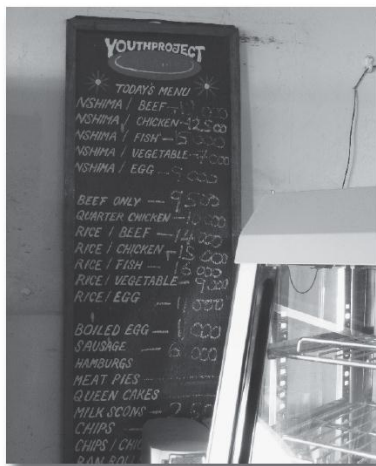 YOUTHPROJECT
TODAY'S MENU
NSHIMA / BEEF
NSHIMA / CHICKEN - 12500
NSHIMA / FISH - 15000
NSHIMA / VEGETABLE - 7000
NSHIMA / EGG - 9000
BEEF ONLY - 9500
QUARTER CHICKEN - 10000
RICE / BEEF - 14000
RICE / CHICKEN - 15000
RICE / FISH - 16000
RICE / VEGETABLE - 9000
RICE / EGG
BOILED EGG - 1000
SAUSAGE - 6000
HAMBURGS
MEAT PIES
QUEEN CAKES
MILK SCONS
CHIPS
CHIPS /